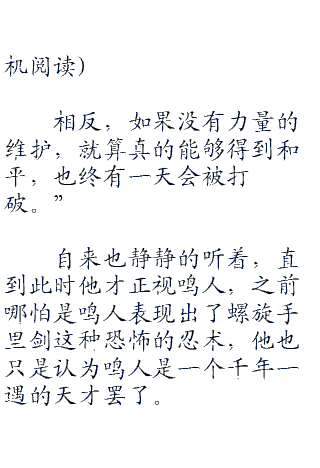 机阅读)
相反，如果没有力量的
维护，就算真的能够得到和
平，也终有一天会被打
破。”
自来也静静的听着，直
到此时他才正视鸣人，之前
哪怕是鸣人表现出了螺旋手
里剑这种恐怖的忍术，他也
只是认为鸣人是一个千年一
遇的天才罢了。